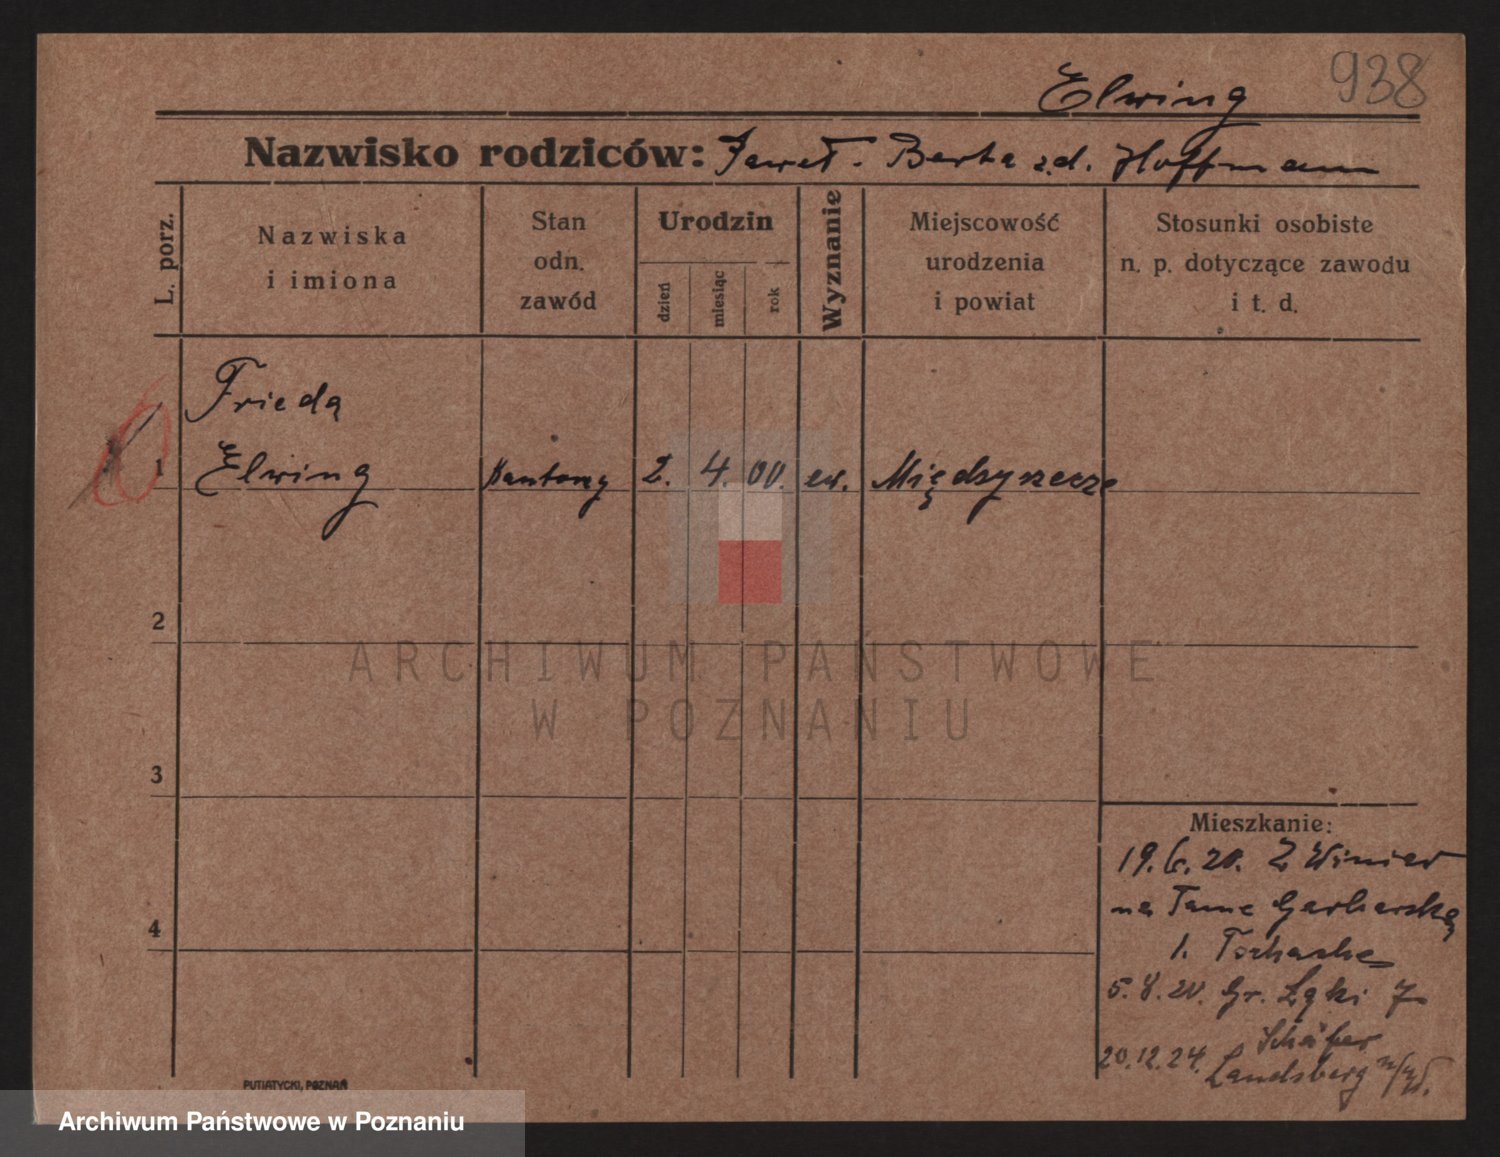 938
Elwing
Nazwisko rodziców: Paweł. Berta z.d. Hoffmann
L. porz.
Nazwiska
i imiona
Stan
odn.
zawód
Urodzin
dzień
miesiąc
rok
Wyznanie
Miejscowość
urodzenia
i powiat
Stosunki osobiste
n. p. dotyczące zawodu
i t. d.
Frieda
1 Elwing 2. 4. 00. ew. Międzyrzecze
2
3
4
ARCHIWUM PAŃSTWOWE
W POZNANIU
Mieszkanie:
19. 6. 20. Z Winiar
na Tame Garbarską
1.
5. 8. 20. Gr. Łąki 7
Schäfer
20.12.24. Landsberg n/W.
PUTIATYCKI, POZNAŃ
Archiwum Państwowe w Poznaniu